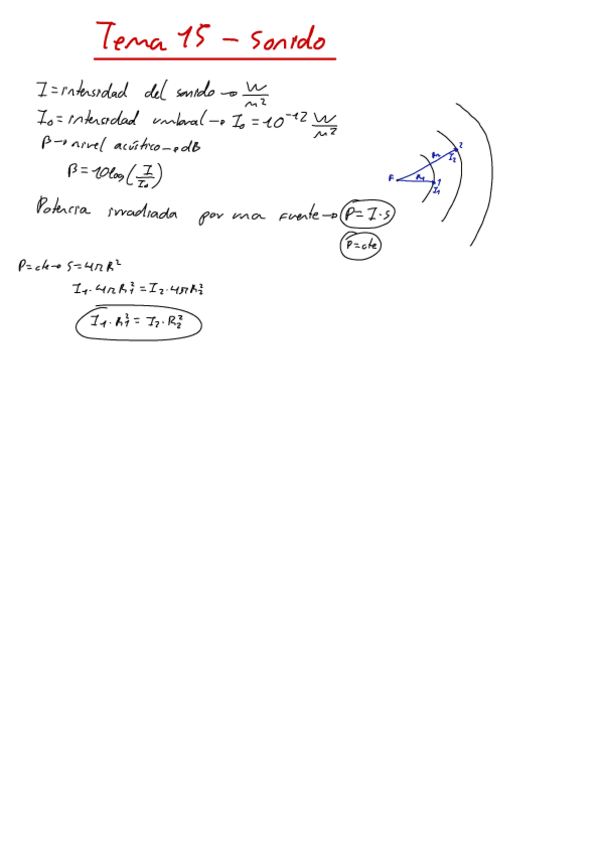 Tema 15 - Sonido
I = intensidad del sonido → W/m²
I₀ = intensidad umbral → I₀ = 10⁻¹² W/m²
β → nivel acústico → dB
β = 10 log (I/I₀)
Potencia irradiada por una fuente → P = I · S
P = cte
F R₁ 1 I₁ R₂ 2 I₂
P = cte → S = 4πR²
I₁ · 4πR₁² = I₂ · 4πR₂²
I₁ · R₁² = I₂ · R₂²